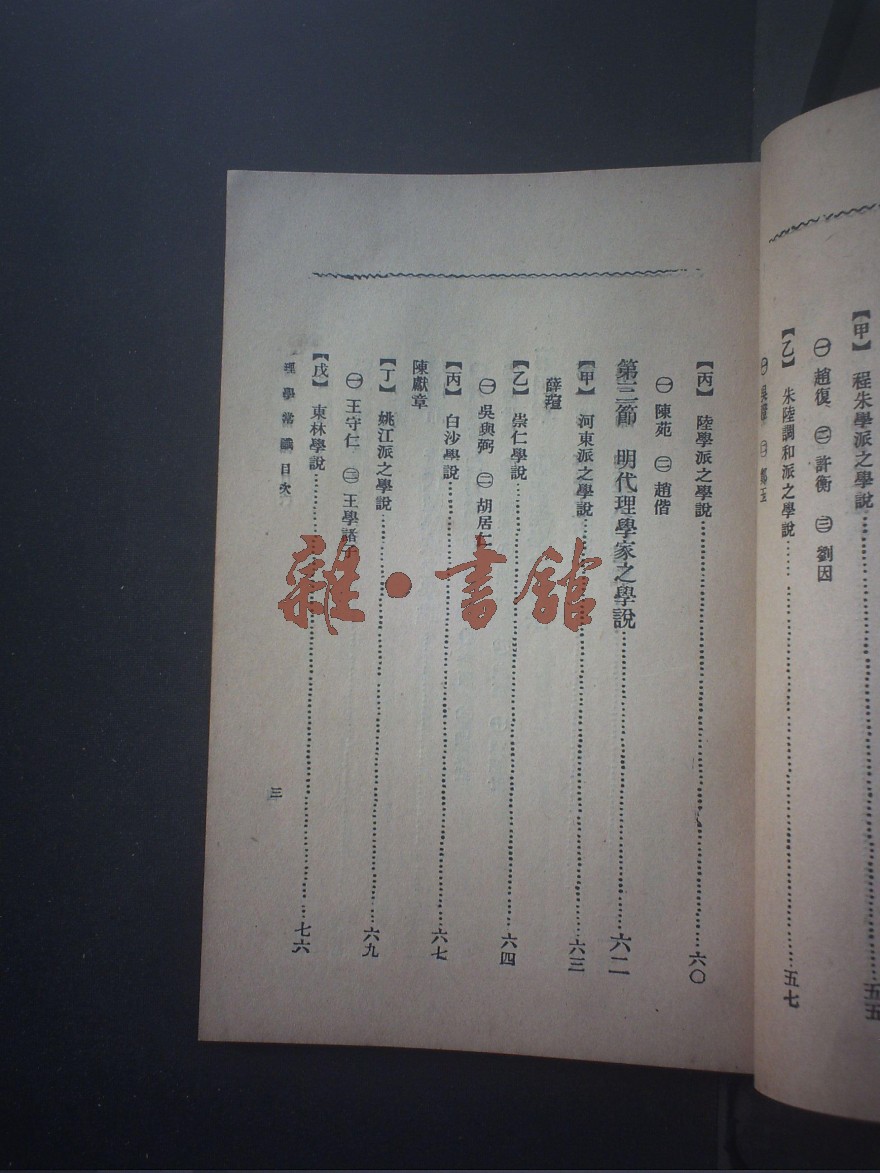 【甲】 程朱學派之學說……五五
㊀ 趙復 ㊁ 許衡 ㊂ 劉因
【乙】 朱陸調和派之學說……五七
【丙】 陸學派之學說……六〇
㊀ 陳苑 ㊁ 趙偕
第三節 明代理學家之學說……六二
【甲】 河東派之學說……六三
薛瑄
【乙】 崇仁學說……六四
㊀ 吳與弼 ㊁ 胡居仁
【丙】 白沙學說……六七
陳獻章
【丁】 姚江派之學說……六九
㊀ 王守仁 ㊁ 王學諸子
【戊】 東林學說……七六
理學常識目次
三
雜·書館